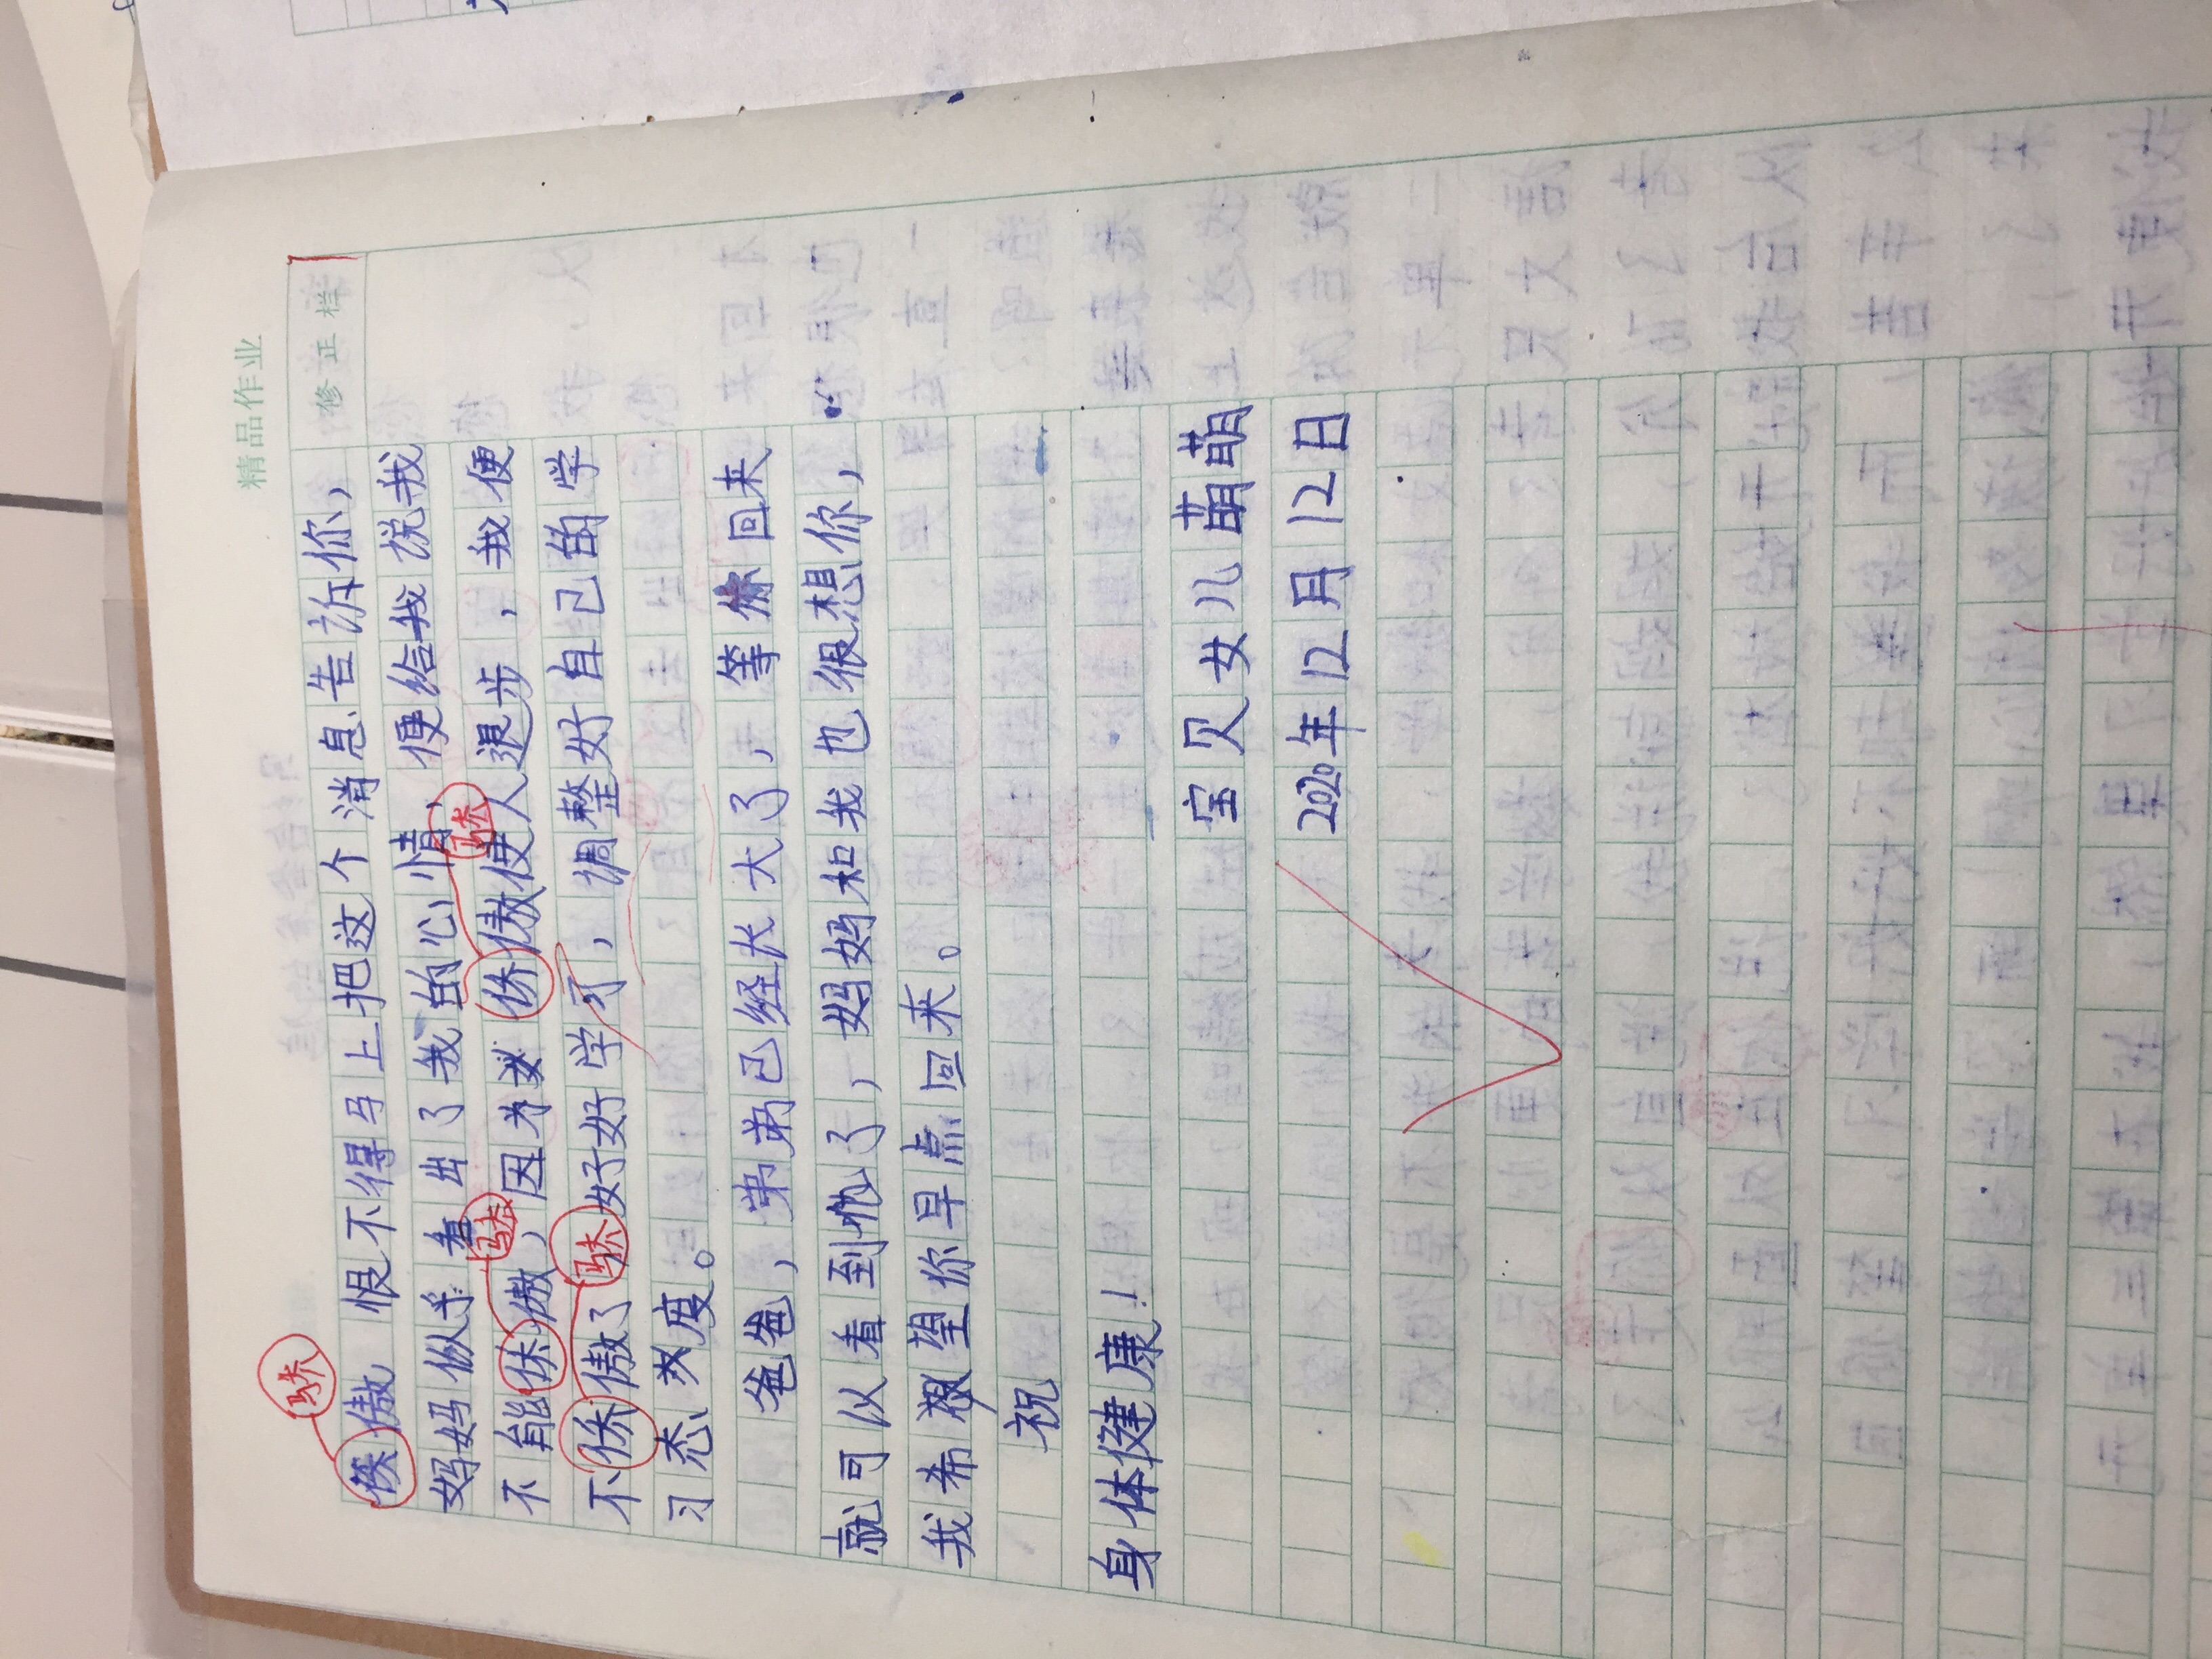 精品作业
修正栏
骄
傲傲恨不得马上把这个消息告诉你，
妈妈似乎看出了我的心情，便给我说我
骄
骄
不能休傲，因为休傲使人退步，我便
骄
不休傲了好好学习，调整好自己的学
习态度。
爸爸，弟弟已经长大了，等你回来
就可以看到他了，妈妈和我也很想你，
我希望你早点回来。
祝
身体健康！
宝贝女儿萌萌
2020年12月12日